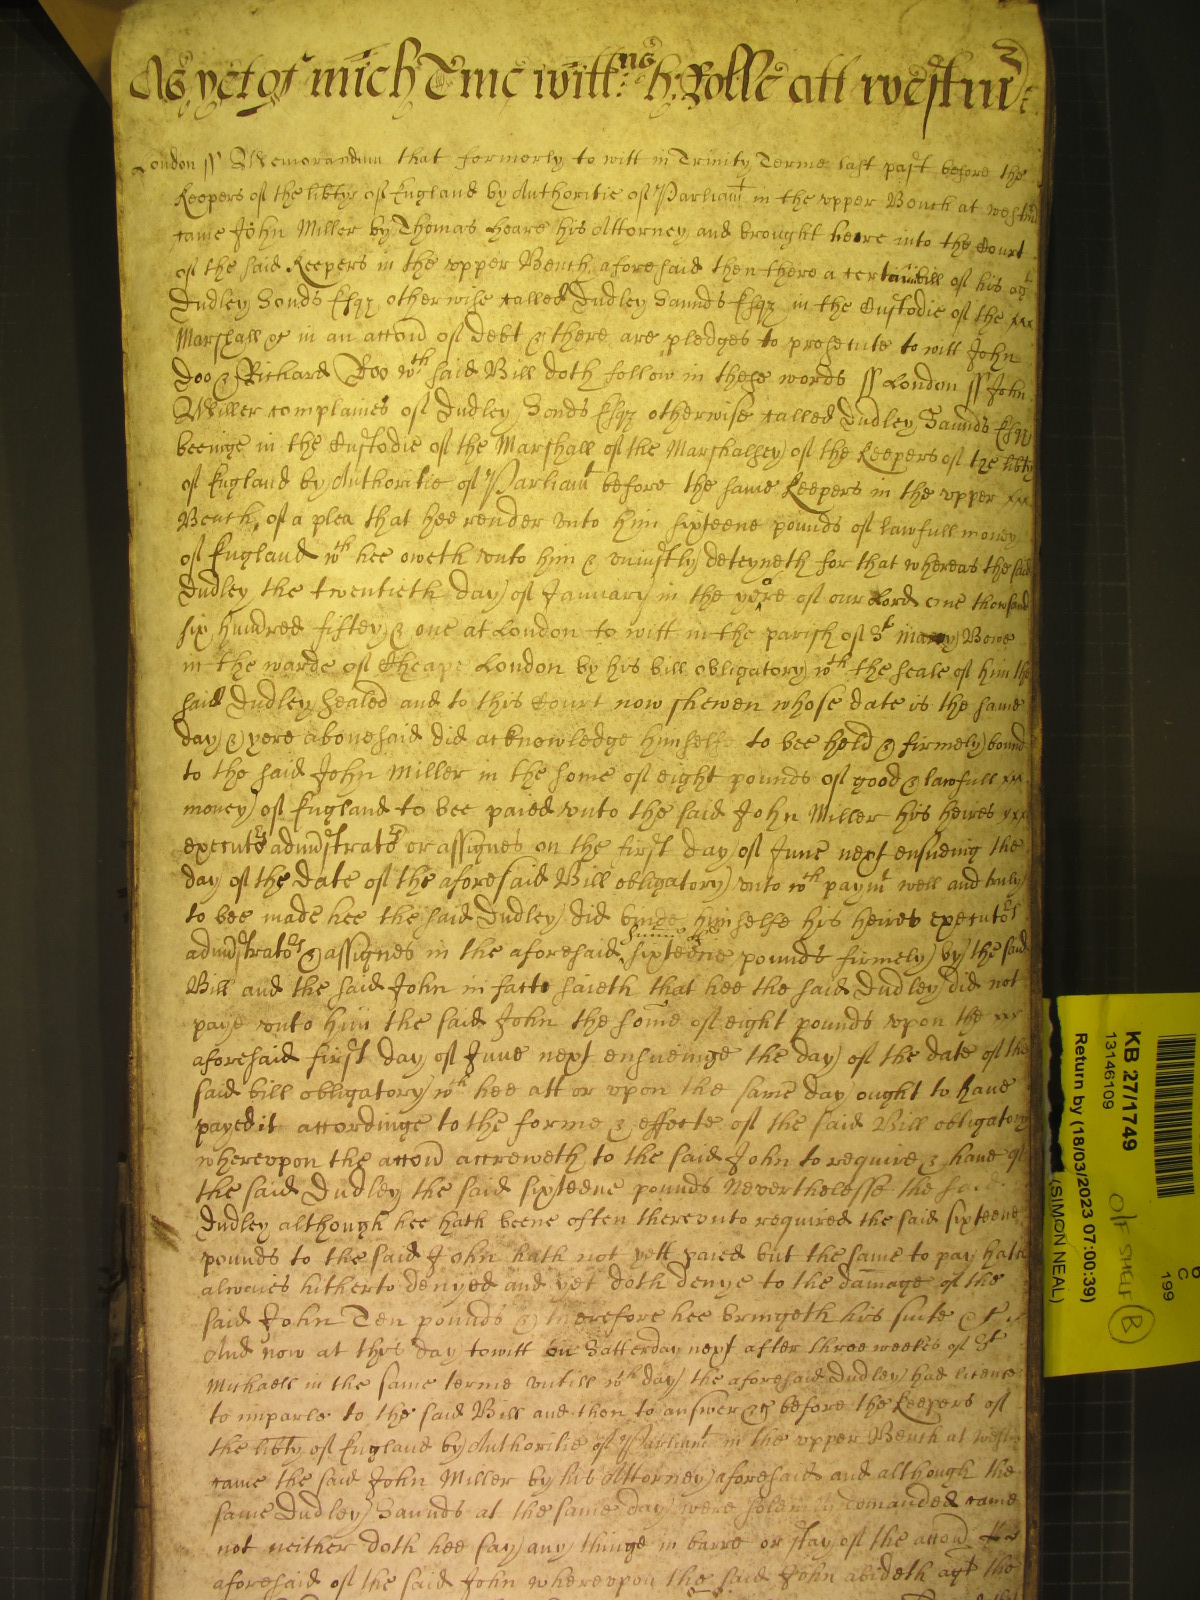 As yet of mich Tme wittns h: Rolle att westmr
London ss Memorandum that formerly to witt in Trinity Terme last past before the
Keepers of the libtye of England by Authoritie of Parliamt in the vpper Bench at westmr
came John Miller by Thomas Hoare his Attorney and brought heere into the Court
of the said Keepers in the vpper Bench aforesaid then there a certaine bill of his agt
Dudley Sonds Esqr otherwise called Dudley Saunds Esqr in the Custodie of the xxx
Marshall &c in an accon of Debt & there are pledges to prosecute to witt John
Doo & Richard Roo wch said Bill doth follow in these words ss London ss John
Miller complaines of Dudley Sonds Esqr otherwise called Dudley Saunds Esqr
beeinge in the Custodie of the Marshall of the Marshalsey of the Keepers of the libty
of England by Authoritie of Parliamt before the same Keepers in the vpper xxx
Bench, of a plea that hee render vnto him sixteene pounds of lawfull money
of England wch hee oweth vnto him & vniustly deteyneth for that whereas the said
Dudley the twentieth day of January in the yeore of our Lord one thousand
six hundred fiftey & one at London to witt in the parish of St mary Bowe
in the warde of Cheape London by his bill obligatory wth the seale of him the
said Dudley sealed and to this Court now shewen whose date is the same
day & yere abouesaid did acknowledge himselfe to bee held & firmely bound
to the said John Miller in the some of eight pounds of good & lawfull xxx
money of England to bee paied vnto the said John Miller his heires xxx
executrs admistratrs or assignes on the first day of June next ensueing the
day of the Date of the aforesaid Bill obligatory vnto wch paymt well and truly
to bee made hee the said Dudley did binde himselfe his heires executors
admistrators & assignes in the aforesaid summe of sixteene pounds firmely by the said
Bill and the said John in facte saieth that hee the said Dudley did not
paye vnto him the said John the some of eight pounds vpon the xxx
aforesaid first day of June next ensueinge the day of the date of the
said bill obligatory wch hee att or vpon the same day ought to haue
payed it accordinge to the forme & effecte of the said Bill obligatory
wherevpon the accon accreweth to the said John to require & haue of
the said Dudley the said sixteene pounds Neverthelesse the said
Dudley although hee hath beene often therevnto required the said sixteene
pounds to the said John hath not yett paied but the same to pay hath
alwaies hitherto denyed and yet doth denye to the damage of the
said John Ten pounds & therefore hee bringeth his suite &c
And now at this day to witt on Satterday next after three weekes of St
Michaell in the same terme vntill wch day the aforesaid Dudley had licence
to imparle to the said Bill and then to answer &c before the Keepers of
the libty of England by Authoritie of Parliamt in the vpper Bench at westmr
came the said John Miller by his Attorney aforesaid and although the
same Dudley Saunds at the same day were solemnly comanded came
not neither doth hee say any thinge in barre or stay of the accon
aforesaid of the said John wherevpon the said John abideth agt the
KB 27/1749
13146109
Return by (18/03/2023 07:00:39)
(SIMON NEAL)
O/F SHELF B
C
199